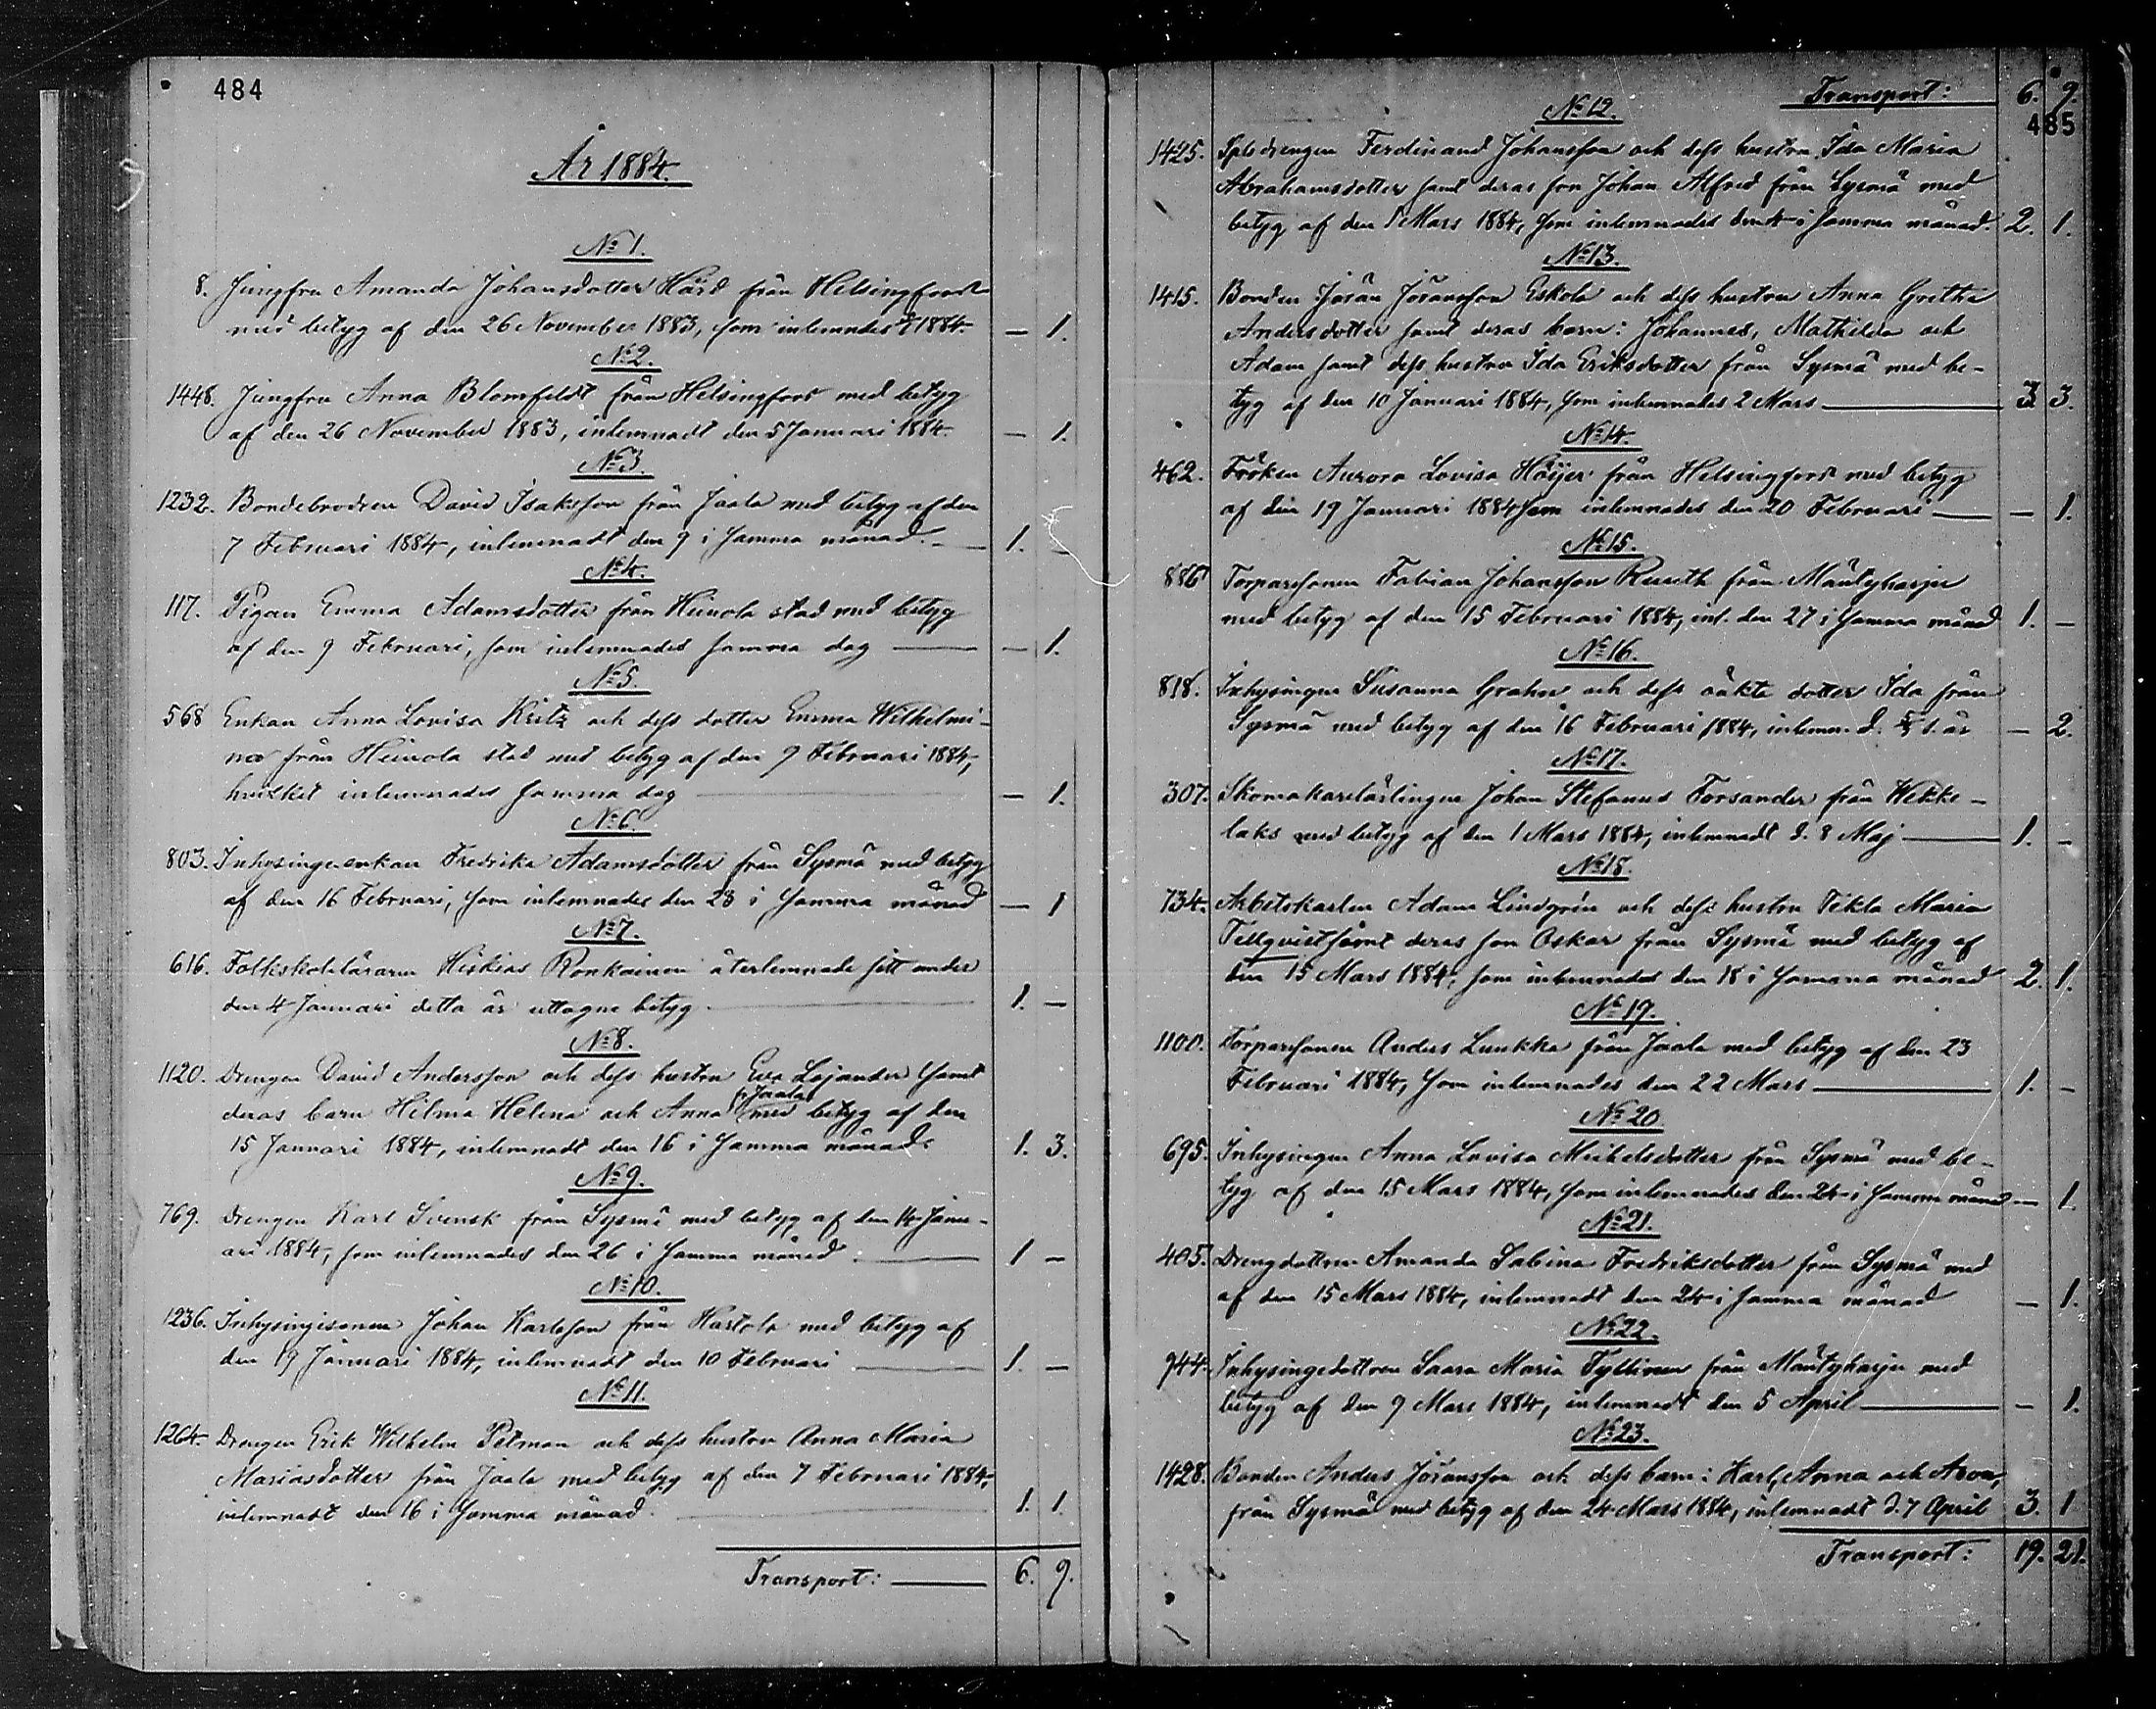 484
År 1884.
No 1.
8. Jungfru Amanda Johansdotter Hård från Helsingfors
med betyg af den 26 November 1883, som inlemnades 1884 — 1.
No 2.
1448. Jungfru Anna Blomfeldt från Helsingfors med betyg
af den 26 November 1883, inlemnadt den 5 Januari 1884. — 1.
No 3.
1232. Bondebrodren David Isaksson från Jaala med betyg af den
7 Februari 1884, inlemnadt den 9 i samma månad. — 1. —
No 4.
117. Pigan Emma Adamsdotter från Heinola stad med betyg
af den 9 Februari, som inlemnades samma dag — — 1.
No 5.
568 Enkan Anna Lovisa Kritz och dess dotter Emma Wilhelmi-
na från Heinola stad med betyg af den 9 Februari 1884,
hvilket inlemnades samma dag — — 1.
No 6.
803. Inhysingeenkan Fredrika Adamsdotter från Sysmä med betyg
af den 16 Februari, som inlemnades den 23 i samma månad — 1
No 7.
616. Folkskoleläraren Hiskias Ronkainen återlemnade sitt under
den 4 Januari detta år uttagne betyg. — 1. —
No 8.
1120. Drengen David Andersson och dess hustru Eva Lojander samt
deras barn Hilma Helena och Anna fr. Jaala med betyg af den
15 Januari 1884, inlemnadt den 16 i samma månad. 1. 3.
No 9.
769. Drengen Karl Svensk från Sysmä med betyg af den 14 Janu-
ari 1884, som inlemnades den 26 i samma månad. — 1 —
No 10.
1236. Inhysingesonen Johan Karlsson från Hartola med betyg af
den 19 Januari 1884, inlemnadt den 10 Februari — 1. —
No 11.
1264. Drengen Erik Wilhelm Petman och dess hustru Anna Maria
Mariasdotter från Jaala med betyg af den 7 Februari 1884,
inlemnadt den 16 i samma månad. — 1. 1.
Transport: — 6. 9.
Transport: 6. 9.
485
No 12.
1425. Spls drengen Ferdinand Johansson och dess hustru Ida Maria
Abrahamsdotter samt deras son Johan Alfred från Sysmä med
betyg af den 1 Mars 1884, som inlemnades den 4 i samma månad. 2. 1.
No 13.
1415. Bonden Jöran Jöransson Eskola och dess hustru Anna Gretha
Andersdotter samt deras barn: Johannes, Mathilda och
Adam samt dess hustru Ida Eriksdotter från Sysmä med be-
tyg af den 10 Januari 1884, som inlemnades 2 Mars — 3 3.
No 14.
462. Fröken Aurora Lovisa Höijer från Helsingfors med betyg
af den 19 Januari 1884 som inlemnades den 20 Februari — — 1.
No 15.
886 Torparesonen Fabian Johansson Ruuth från Mäntyharju
med betyg af den 15 Februari 1884, inl. den 27 i samma månad 1. —
No 16.
818. Inhysingen Susanna Grahn och dess oäkta dotter Ida från
Sysmä med betyg af den 16 Februari 1884, inlemn. d. s. år — 2.
No 17.
307. Skomakarelärlingen Johan Stefanus Forsander från Wekke-
laks med betyg af den 1 Mars 1884, inlemnadt d. 8 Maj — 1. —
No 18.
734. Arbetskarlen Adam Lindgrén och dess hustru Tekla Maria
Tellqvist samt deras son Oskar från Sysmä med betyg af
den 15 Mars 1884, som inlemnades den 18 i samma månad 2. 1.
No 19.
1100. Torparesonen Anders Luukka från Jaala med betyg af den 23
Februari 1884, som inlemnades den 22 Mars — 1. —
No 20
695. Inhysingen Anna Lovisa Mickelsdotter från Sysmä med be-
tyg af den 15 Mars 1884, som inlemnades den 24 i samma månad — 1.
No 21.
405. Drengdottren Amanda Sabina Fredriksdotter från Sysmä med
af den 15 Mars 1884, inlemnadt den 24 i samma månad — 1.
No 22.
944. Inhysingedottren Saara Maria Tyllinen från Mäntyharju med
betyg af den 9 Mars 1884, inlemnadt den 5 April — — 1.
No 23.
1428. Bonden Anders Jöransson och dess barn: Karl, Anna och Aron,
från Sysmä med betyg af den 24 Mars 1884, inlemnadt d. 7 April 3. 1
Transport: 19. 21.